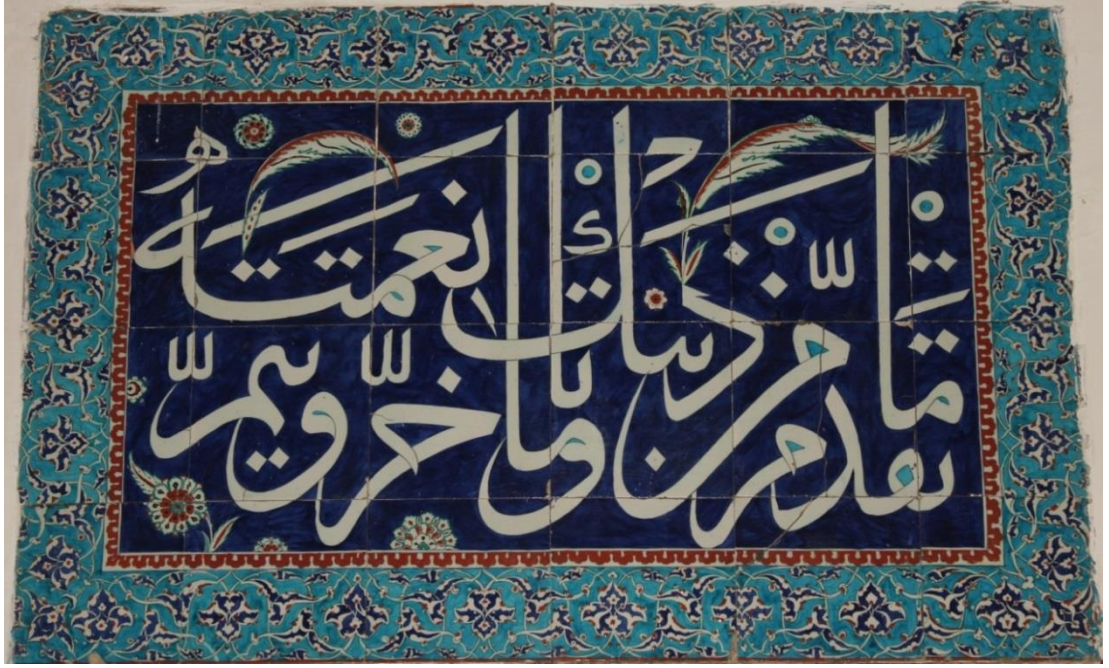 ما تقدّم من ذنبك وما تأخّر ويتمّ نعمته